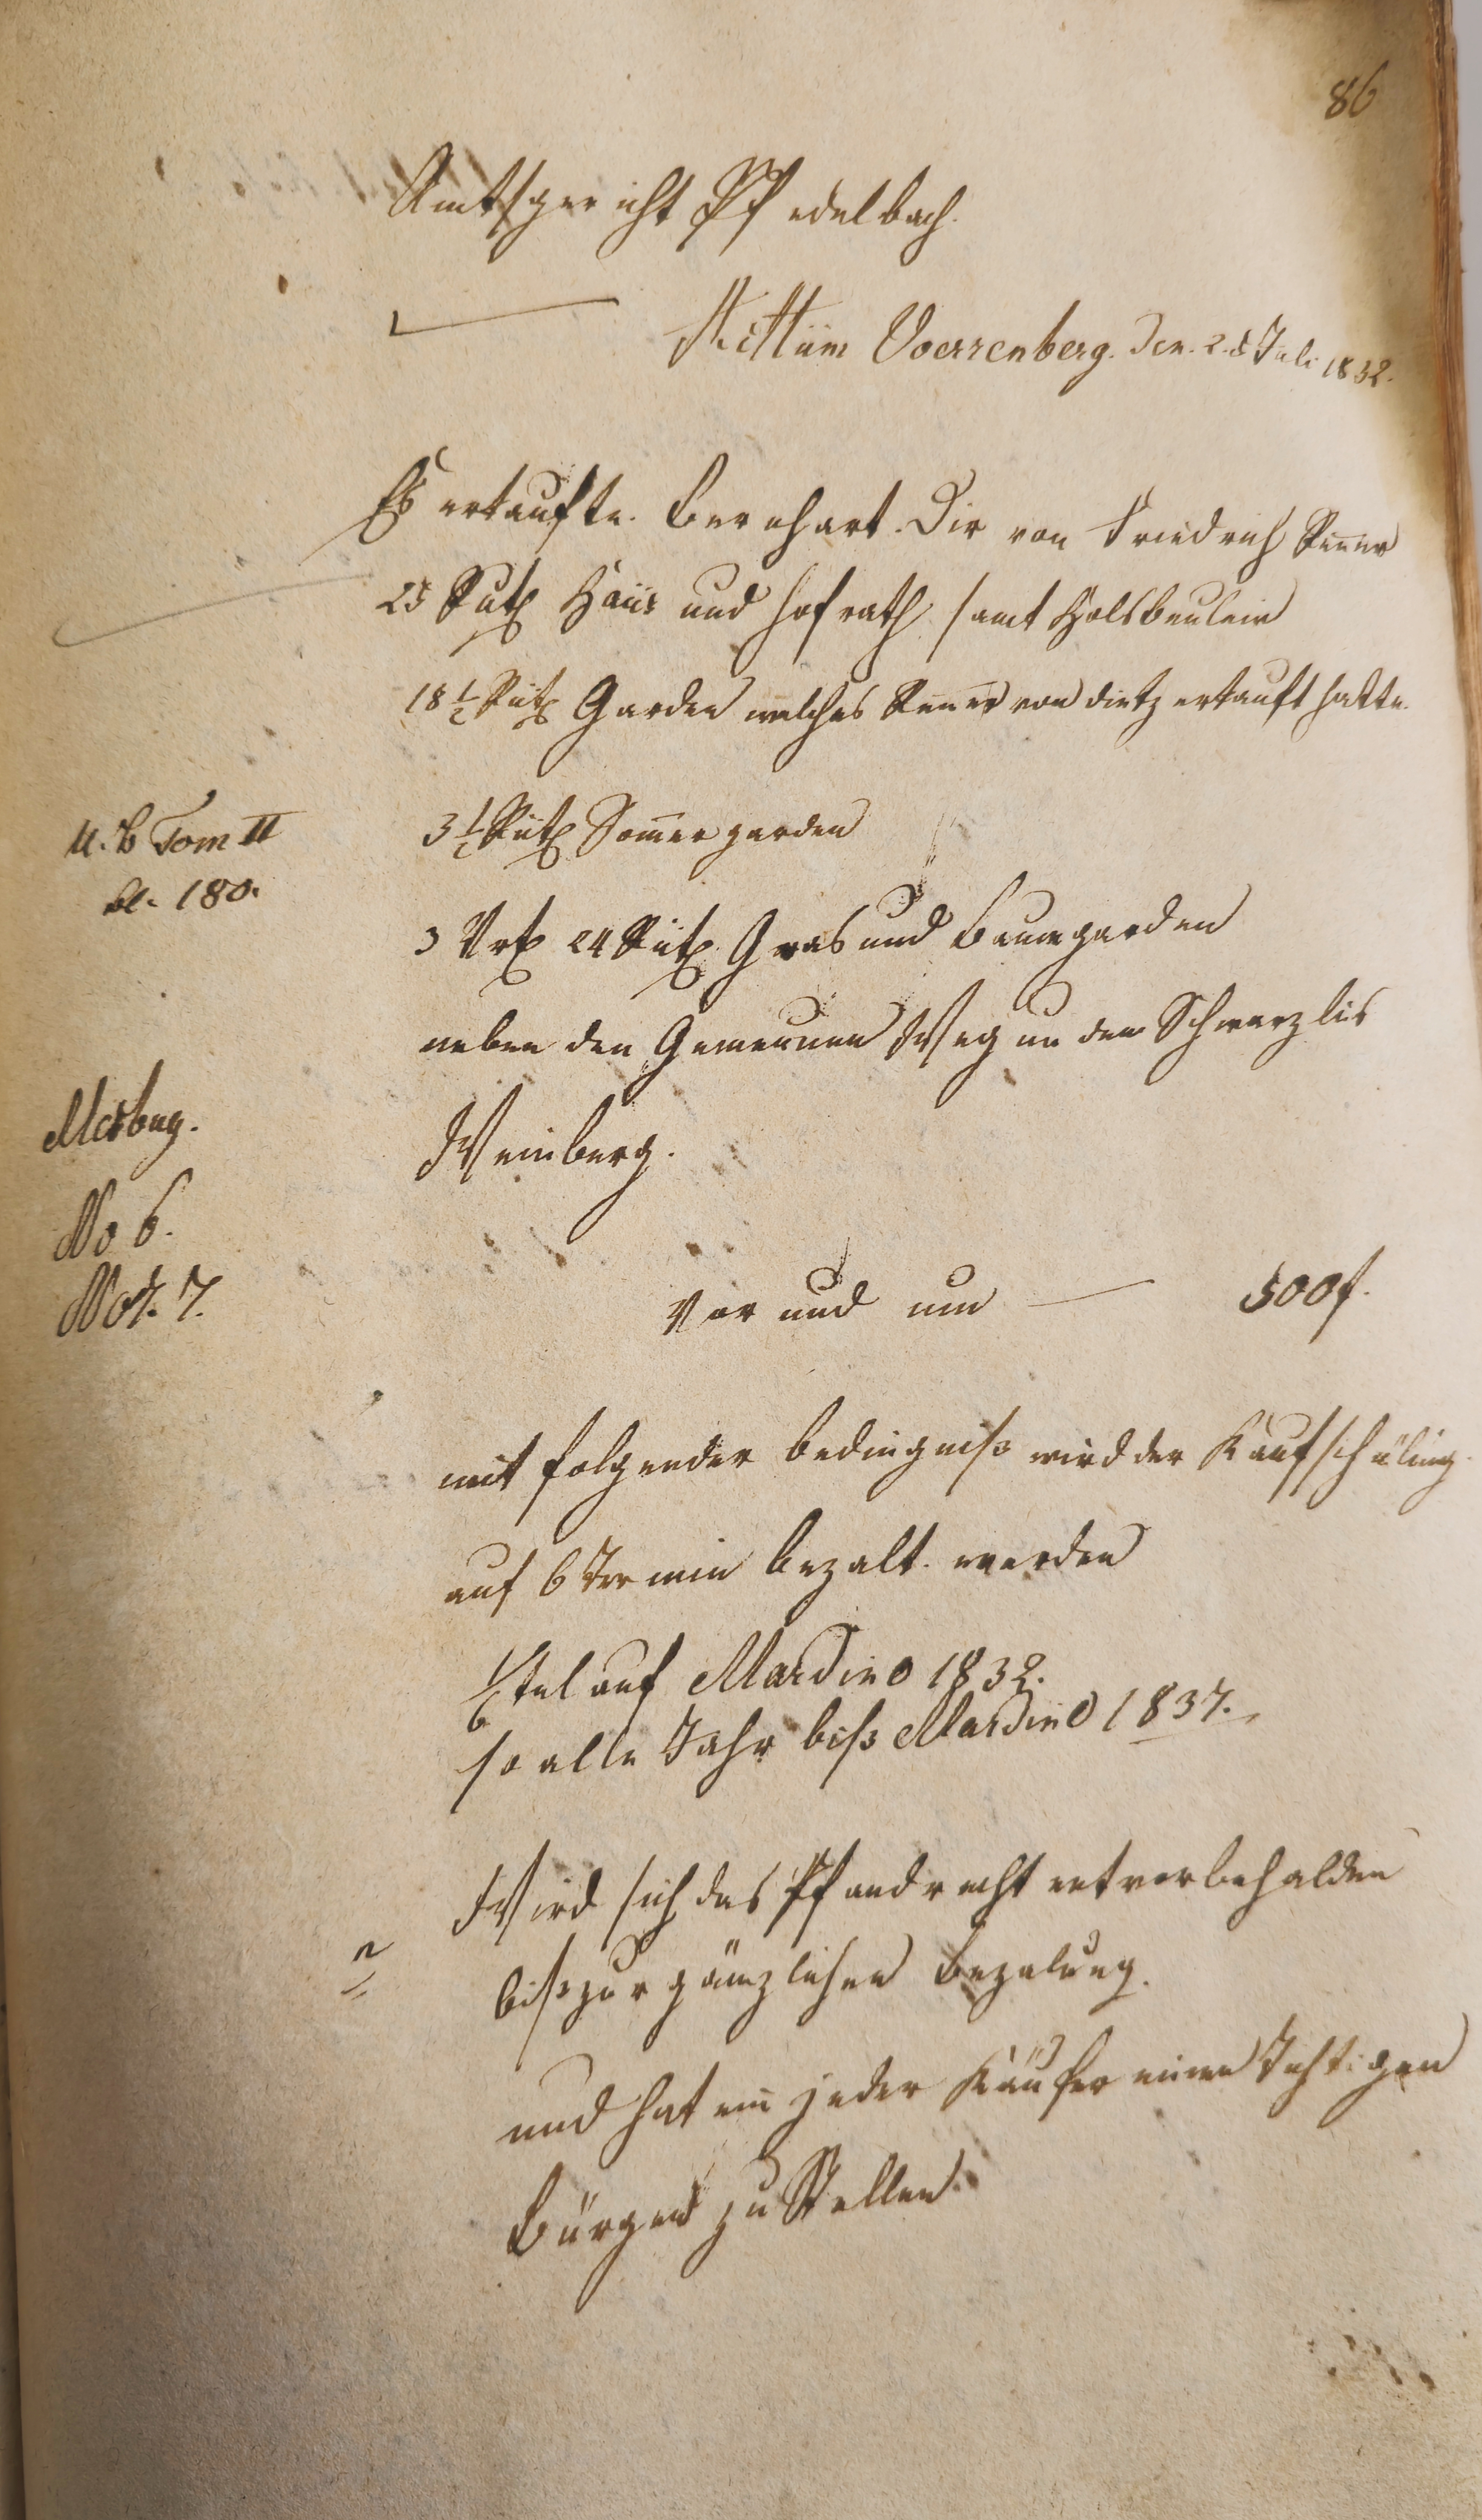 86
Amtsgericht Pfedelbach.
Actum Voerrenberg. Den. 2. t Juli 1832.
Es erkaufte. Bernhart. Dir von Friedrich Renner
25 Rut Haus und hofrath samt Holsbeulein
18 1/2 Rut Garden welches Renner von Dietz erkauft hatte.
U. B Tom II
bl. 180.
3 1/2 Rut Somergarden
3 Vrt 24 Rut Gras und Baumgarden
neben den Gemeinen Weg und den Schwarzlis
Weinberg.
No 6.
No 7.
Vor und um — 500f.
mit folgender Bedingniß wird der Kaufschilling
auf 6 Termin bezalt. werden
1/6tel auf Mardino 1832.
so alle Jahr biß Mardino 1837.
Wird sich das Pfandrecht vorbehalden
biß zur gänzlichen Bezalung.
und hat ein jeder Käufer einen Tichtigen
Bürgen zu Stellen.